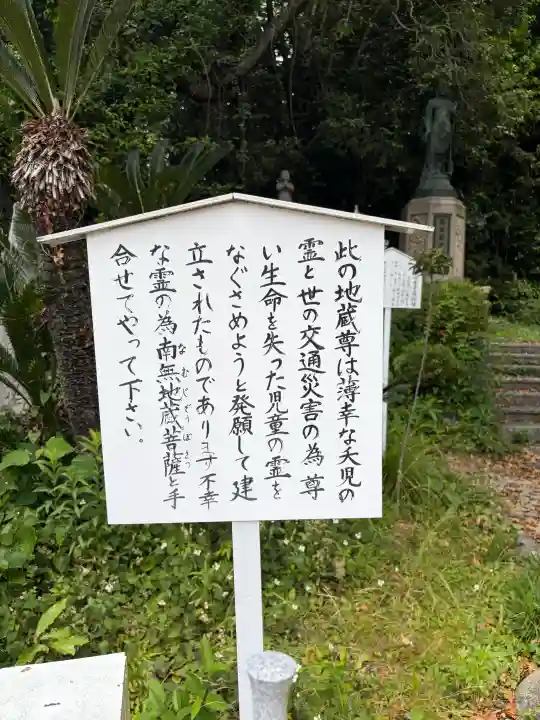 此の地蔵尊は薄幸な夭児の
霊と世の交通災害の為尊
い生命を失った児童の霊を
なぐさめようと発願して建
立されたものであります不幸
な霊の為南無地蔵菩薩と手
なむじぞうぼさつ
合せてやって下さい。